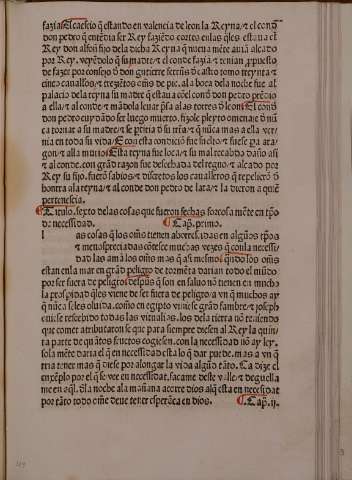 fazia. E acaesio q̄ estando en valencia de leon la Reyna/ τ el cond
don pedro q̄ entēdia ser Rey faziēdo cortes en las q̄les estaua el
Rey don alfonso fijo de la dicha Reyna q̄ nueua mēte auia alçado
por Rey. veyendolo q̄ su madre/ τ el conde fazia
de fazer por consejo d̄ don gutierre ferrnās de castro tomo treynta τ
cinco cauallos/ τ trezitos oms̄ de pie. a la boca de la noche fue al
palacio de la reyna su madre q̄ estaua cō el cond̄ don pedro τ prēdio
a ella/ τ al conde τ mādola leuar p̄sa a las torres d̄ leon. E el cond̄
don pedro cuydādo ser luego muerto. fizole pleyto omenaje d̄ nū
ca tornar a su madre/ τ se p̄tiria d̄ su trr̄a/ τ q̄ nūca mas a ella ver
nia en toda su vida/ E con esta condiciō fue suelto/ τ fuese pa ara
gon/ τ alla murio. Esta reyna fue loca/ τ su mal recabdo daño asi
τ al conde. con grād razon fue desechada del regno/ τ alçado por
Rey su fijo. fuerō sabios/ τ discretos los caualleros q̄ repelierō d̄
honrra a la reyna/ τ al conde don pedro de lara/ τ la dieron a quiē
pertenescia.
¶ Titulo. sexto de las cosas que fueron fechas forçosa mēte en tp̄o
de necessidad. ¶ Cap̄. primo.
l as cosas q̄ los oms̄ tienen aborrescidas en algūos tp̄os
τ menospreciadas cōtesce muchas vezes q̄ con la necessi
dad las amā los oms̄ mas q̄ asi mesmos/ quādo los oms̄
estan en la mar en grād peligro de tormēta darian todo el mūdo
por ser fuera de peligro/ despūs q̄ son en saluo nō tienen en mucho
la prosp̄idad q̄ les viene de ser fuera de peligro/ a vn q̄ muchos ay
q̄ nūca seles oluida. como en egipto viniese grād fambre/ τ joseph
ouiese rescebido todas las vitualias. los de la tierra nō teniendo
que comer atributaron se que para siempre diesen al Rey la quin
ta parte de quātos fructos cogiesen. con la necessidad nō ay ley.
sola mēte daria el q̄ en necessidad esta lo q̄ dar puede. mas a vn q̄
tria tener mas q̄ diese por alongar la vida algūd tāto. Ca dize el
enxēplo por el q̄ se vee en necessidat. sacame deste valle/ τ deguella
me en aq̄l. d̄ la noche a la mañana acorre dios al q̄ esta en necessidat
por tāto todo om̄e deue tener esperāça en dios. ¶ Cap̄. ij.